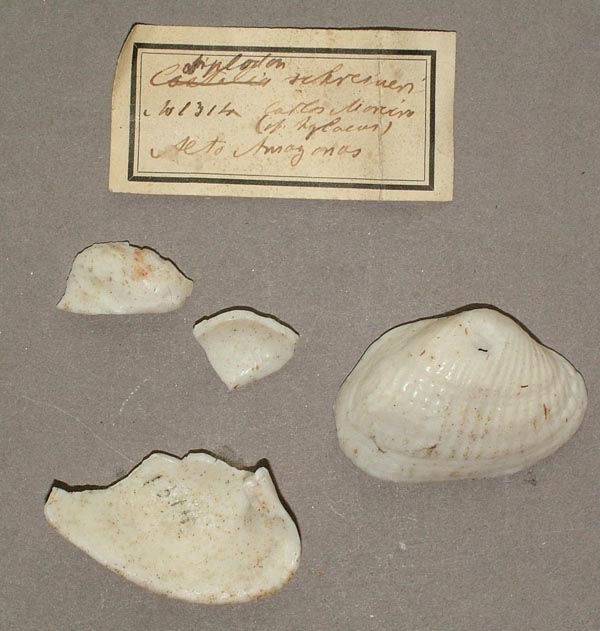 Diplodon
Castalia schreineri
No 1314 Carlos Moreira
(of hylaeus)
Alto Amazonas
1314